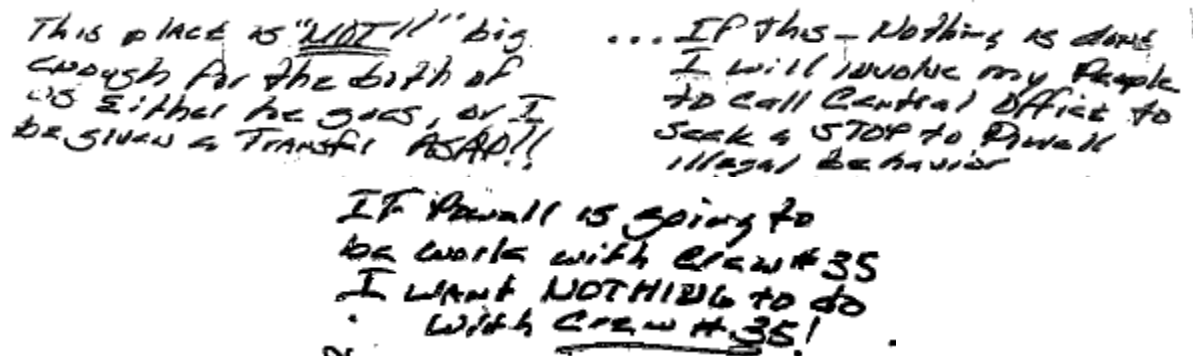 This place is "NOT!!" big
enough for the both of
us Either he goes, or I
be given a Transfer ASAP!!
... If this - Nothing is done
I will involve my People
to call Central Office to
seek a STOP to Powell
illegal behavior
If Powell is going to
be work with Crew # 35
I WANT NOTHING to do
with Crew # 35!